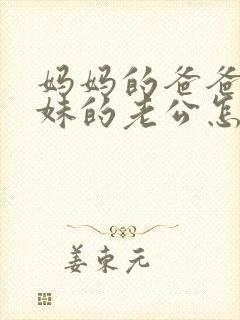 妈妈的爸爸
妹的老公怎
姜东元